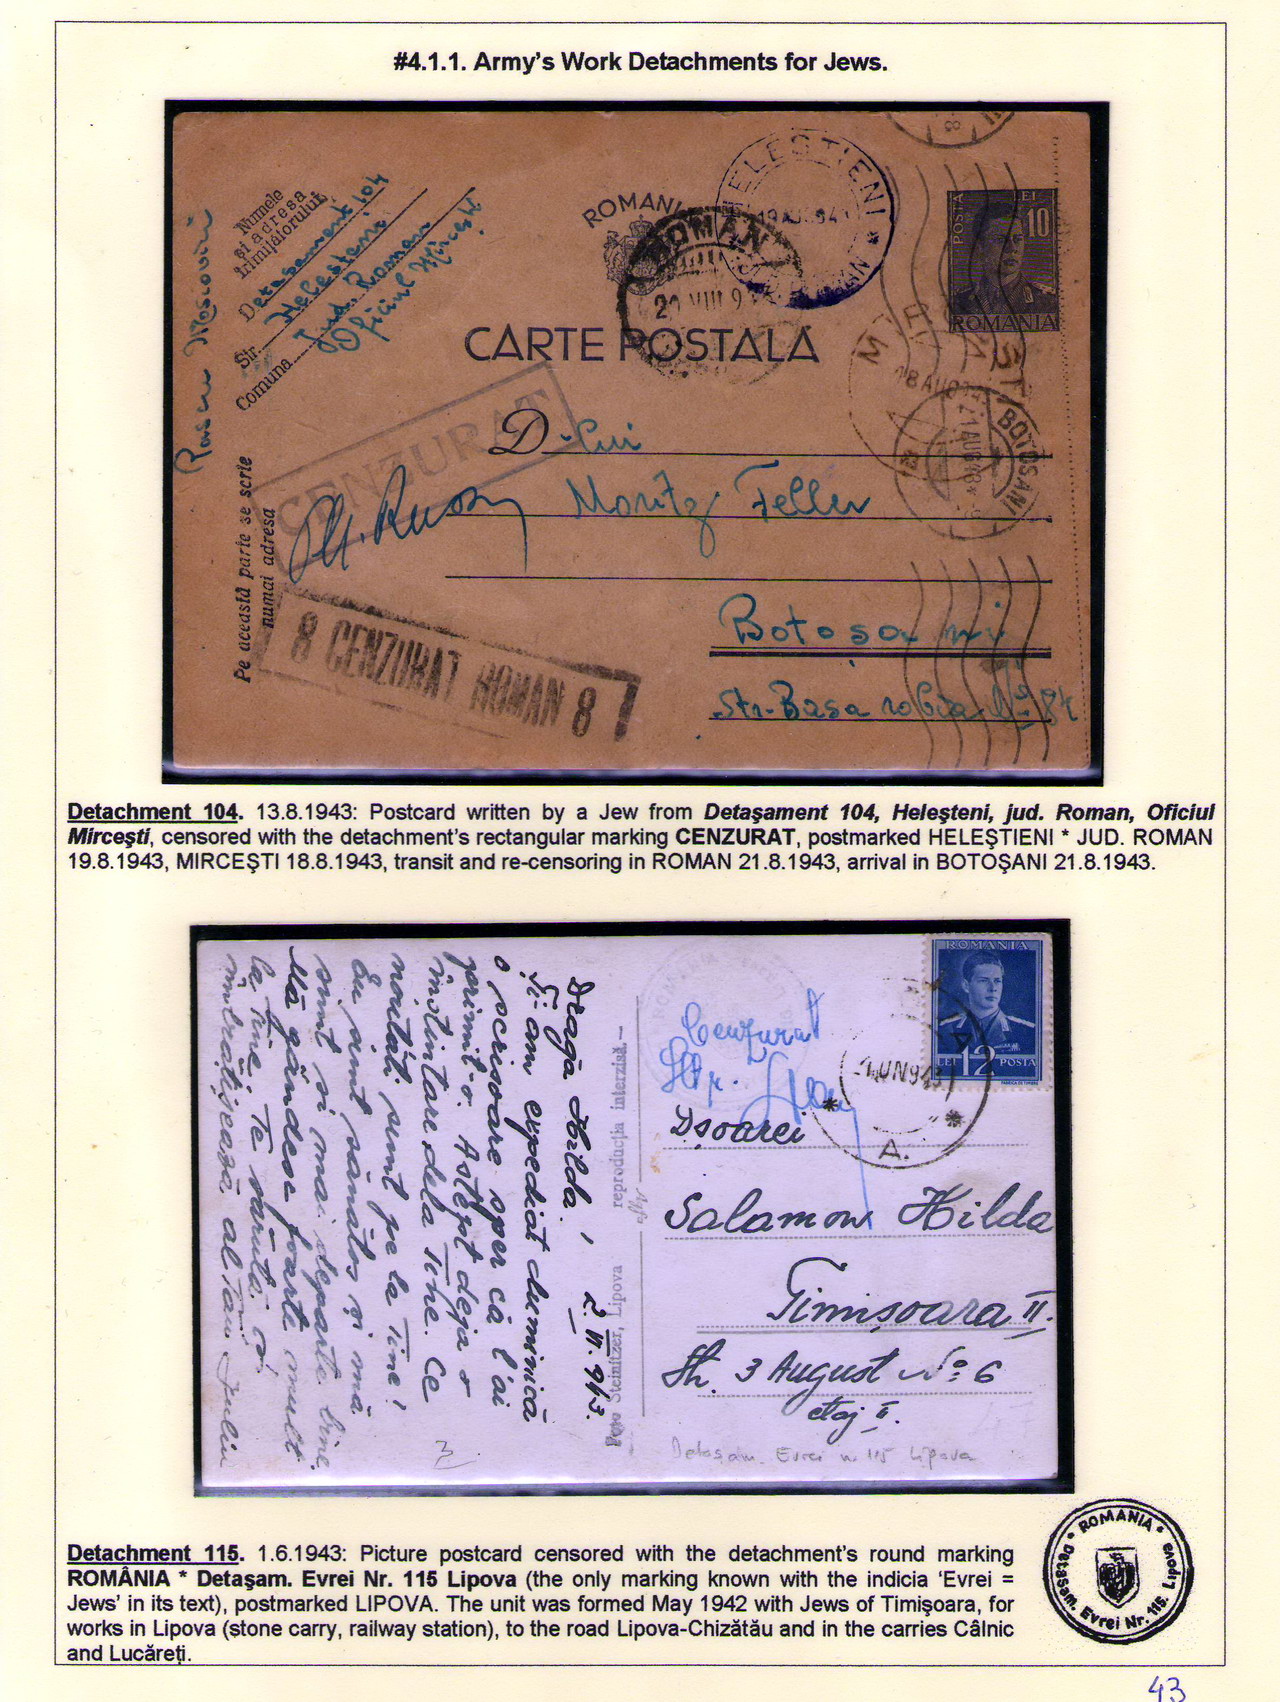 #4.1.1. Army's Work Detachments for Jews.
Numele
și adresa
trimițătorului
Detașament 104
Str. Heleșteni
Jud. Roman
Comuna Oficiul Mircești
Moscovici
ROMANIA
HELEȘTIENI *
19 AUG 943
ROMAN
20 VIII 943
POSTA LEI 10
ROMANIA
CARTE POSTALA
18 AUG
BOTOȘANI
21 AUG
CENZURAT
D-lui
Moritz Feller
Botoșani
Str. Basarabia No 84
Pe această parte se scrie
numai adresa
8 CENZURAT ROMAN 8
Detachment 104. 13.8.1943: Postcard written by a Jew from Detaşament 104, Heleşteni, jud. Roman, Oficiul
Mirceşti, censored with the detachment's rectangular marking CENZURAT, postmarked HELEŞTIENI * JUD. ROMAN
19.8.1943, MIRCEŞTI 18.8.1943, transit and re-censoring in ROMAN 21.8.1943, arrival in BOTOŞANI 21.8.1943.
Dragă Hilda,
2.VI.943.
Ți-am expediat duminică
o scrisoare sper că l'ai
primit-o. Aștept deja o
înștiințare dela Tine. Ce
noutăți sunt pe la Tine?
Eu sunt sănătos și mă
simt și mai departe bine.
Mă gândesc foarte mult
la Tine. Te sărută și
îmbrățișează al Tău Juliu
Foto Steinitzer, Lipova reproducția interzisă.-
ROMANIA
LEI 12 POSTA
Cenzurat
JUN 943
A.
Dșoarei
Salamon Hilda
Timișoara II.
Str. 3 August No 6
etaj II.
3
Detașam. Evrei nr 115 Lipova
Detachment 115. 1.6.1943: Picture postcard censored with the detachment's round marking
ROMÂNIA * Detaşam. Evrei Nr. 115 Lipova (the only marking known with the indicia 'Evrei =
Jews' in its text), postmarked LIPOVA. The unit was formed May 1942 with Jews of Timişoara, for
works in Lipova (stone carry, railway station), to the road Lipova-Chizătău and in the carries Câlnic
and Lucăreţi.
* ROMANIA *
Detaşam. Evrei Nr. 115. Lipova
43